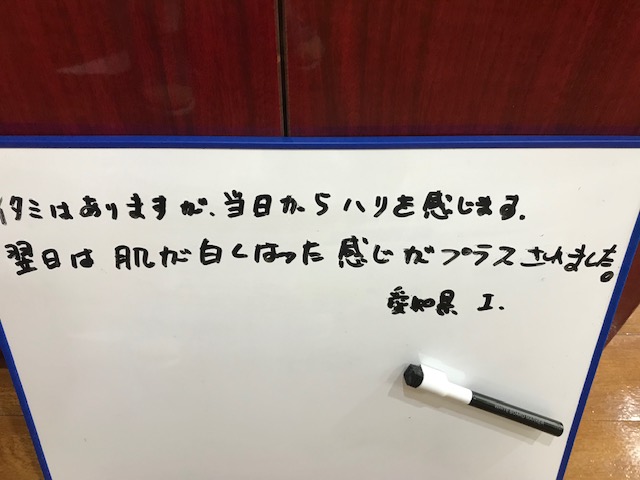 イタミはありますが、当日からハリを感じます。
翌日は肌が白くなった感じがプラスされました。
愛知県 I.